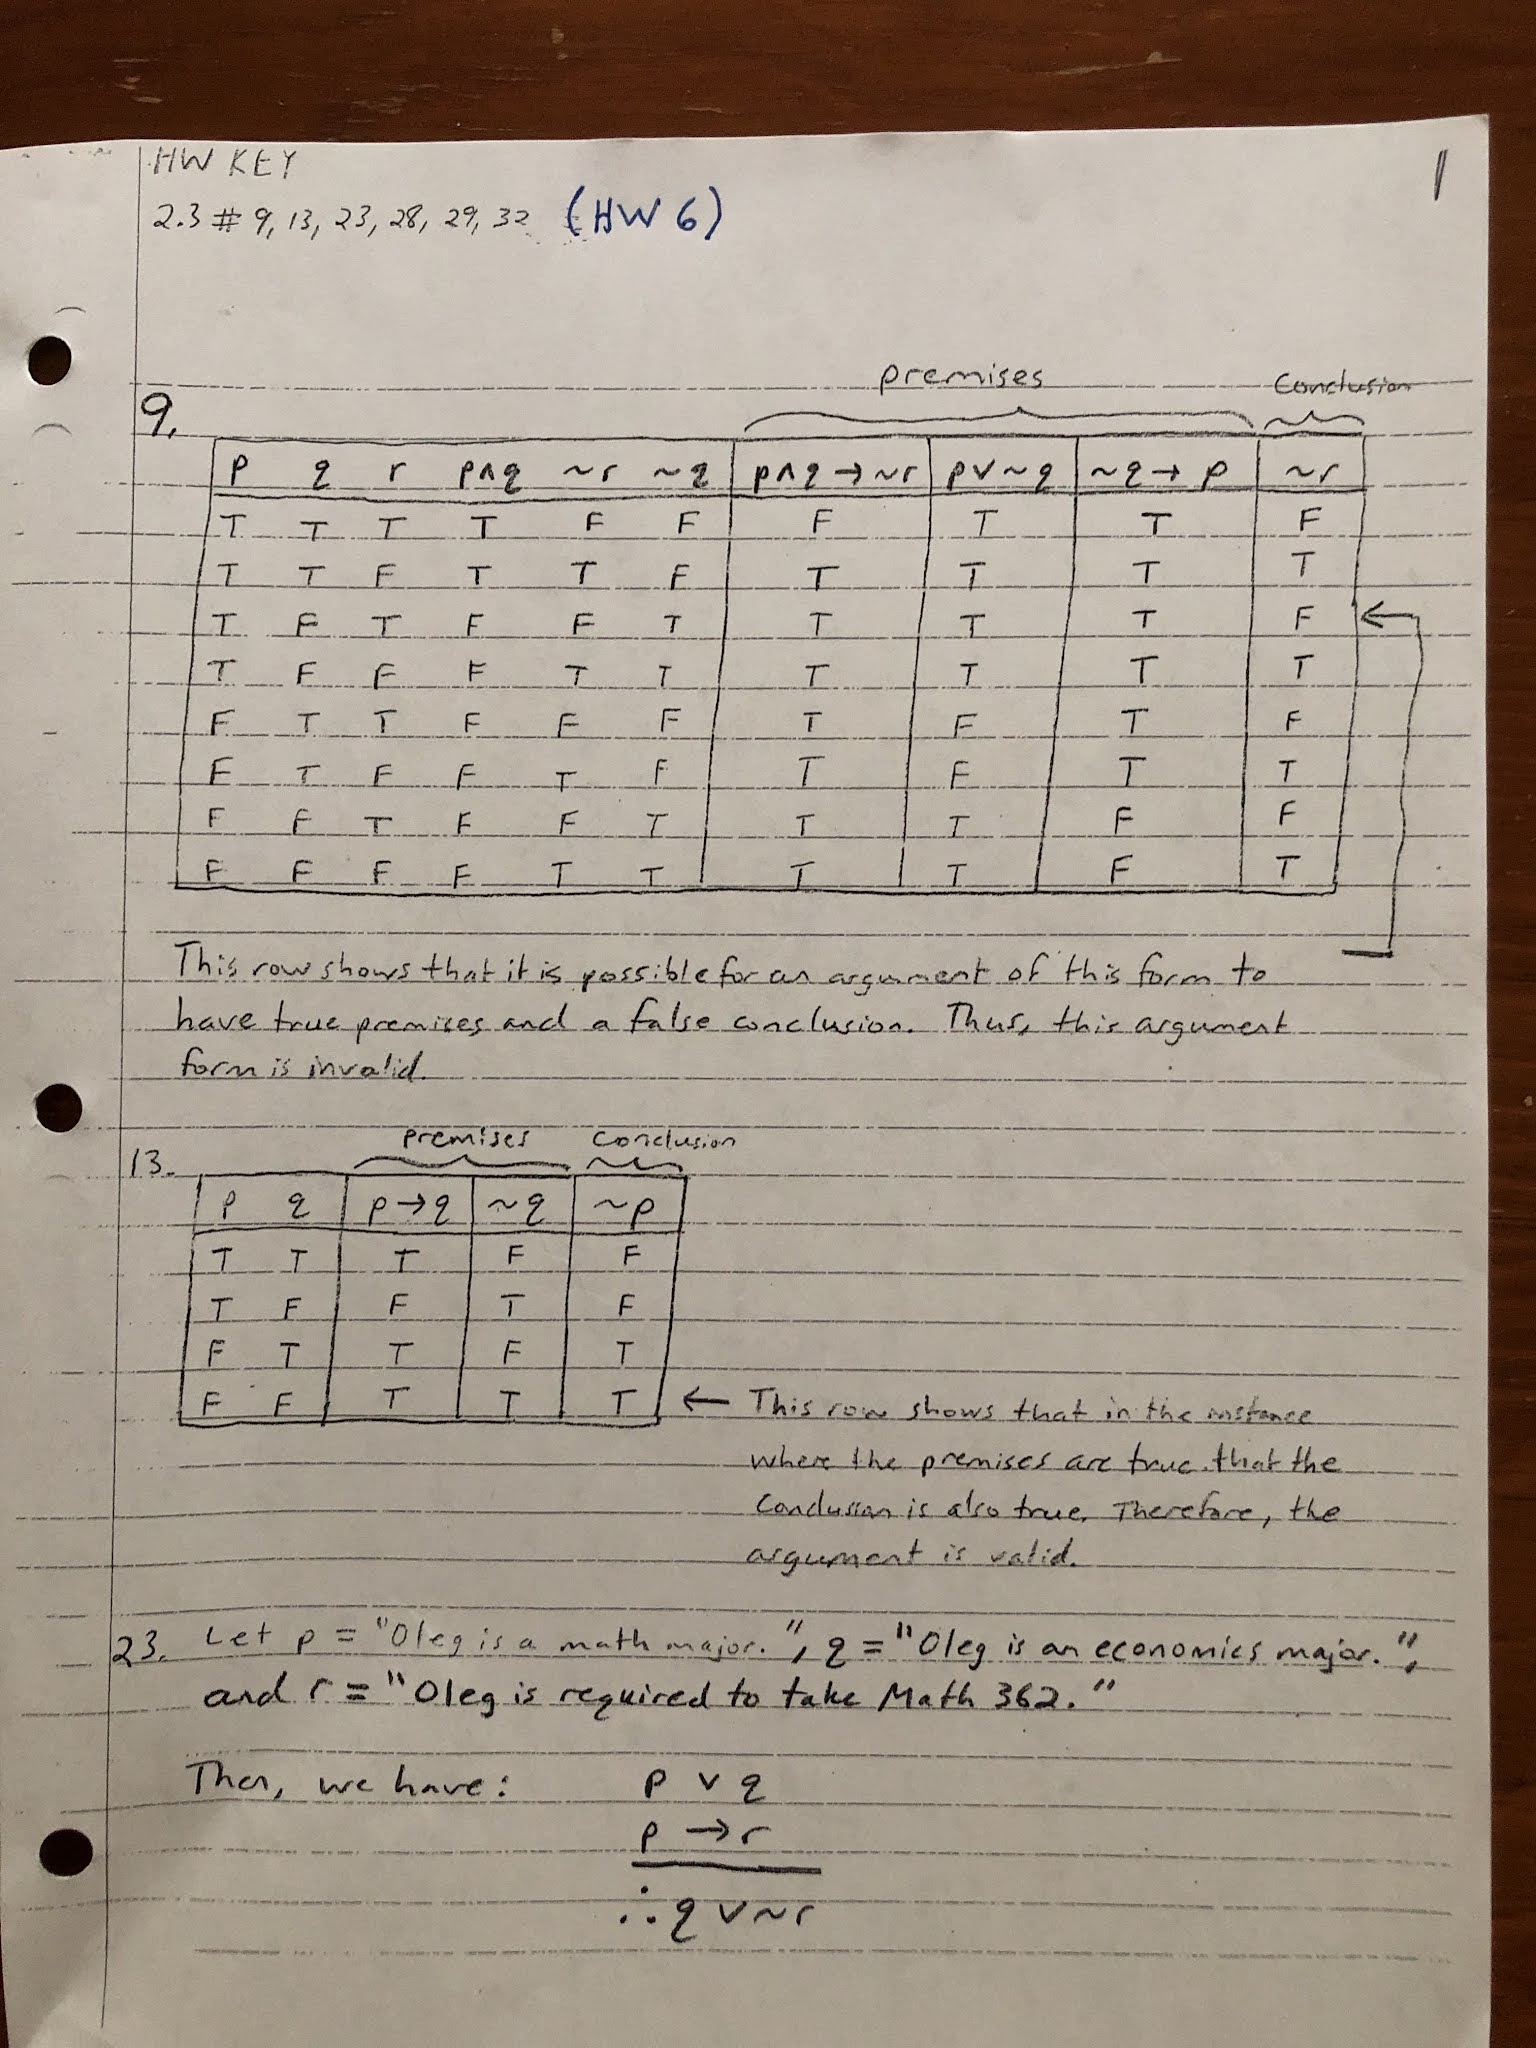 HW KEY
1
2.3 # 9, 13, 23, 28, 29, 32 (HW 6)
premises conclusion
9.
p q r p∧q ~r ~q p∧q→~r p∨~q ~q→p ~r
T T T T F F F T T F
T T F T T F T T T T
T F T F F T T T T F
T F F F T T T T T T
F T T F F F T F T F
F T F F T F T F T T
F F T F F T T T F F
F F F F T T T T F T
This row shows that it is possible for an argument of this form to
have true premises and a false conclusion. Thus, this argument
form is invalid.
premises conclusion
13.
p q p→q ~q ~p
T T T F F
T F F T F
F T T F T
F F T T T ← This row shows that in the instance
where the premises are true that the
conclusion is also true. Therefore, the
argument is valid.
23. Let p = "Oleg is a math major.", q = "Oleg is an economics major.",
and r = "Oleg is required to take Math 362."
Then, we have: p ∨ q
p → r
∴ q ∨ ~r